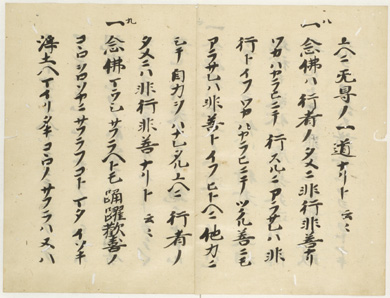 上ヘニ无㝵ノ一道ナリト云々
八
一念佛ハ行者ノタメニ非行非善ナリ
ワカハカラヒニテ行スルニアラサレハ非
行トイフワカハカラヒニテツクル善ニモ
アラサレハ非善トイフヒトヘニ他力ニ
シテ自力ヲハナレタル上ヘニ行者ノ
タメニハ非行非善ナリト云々
九
一念佛マウシサフラヘトモ踊躍歡喜ノ
コヽロヲロソカニサフラフコトマタイソキ
淨土ヘマイリタキコヽロノサフラハヌハ